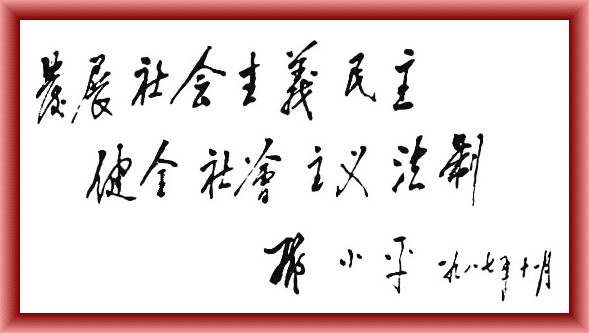 發展社会主義民主
健全社會主义法制
邓小平 一九八七年十一月